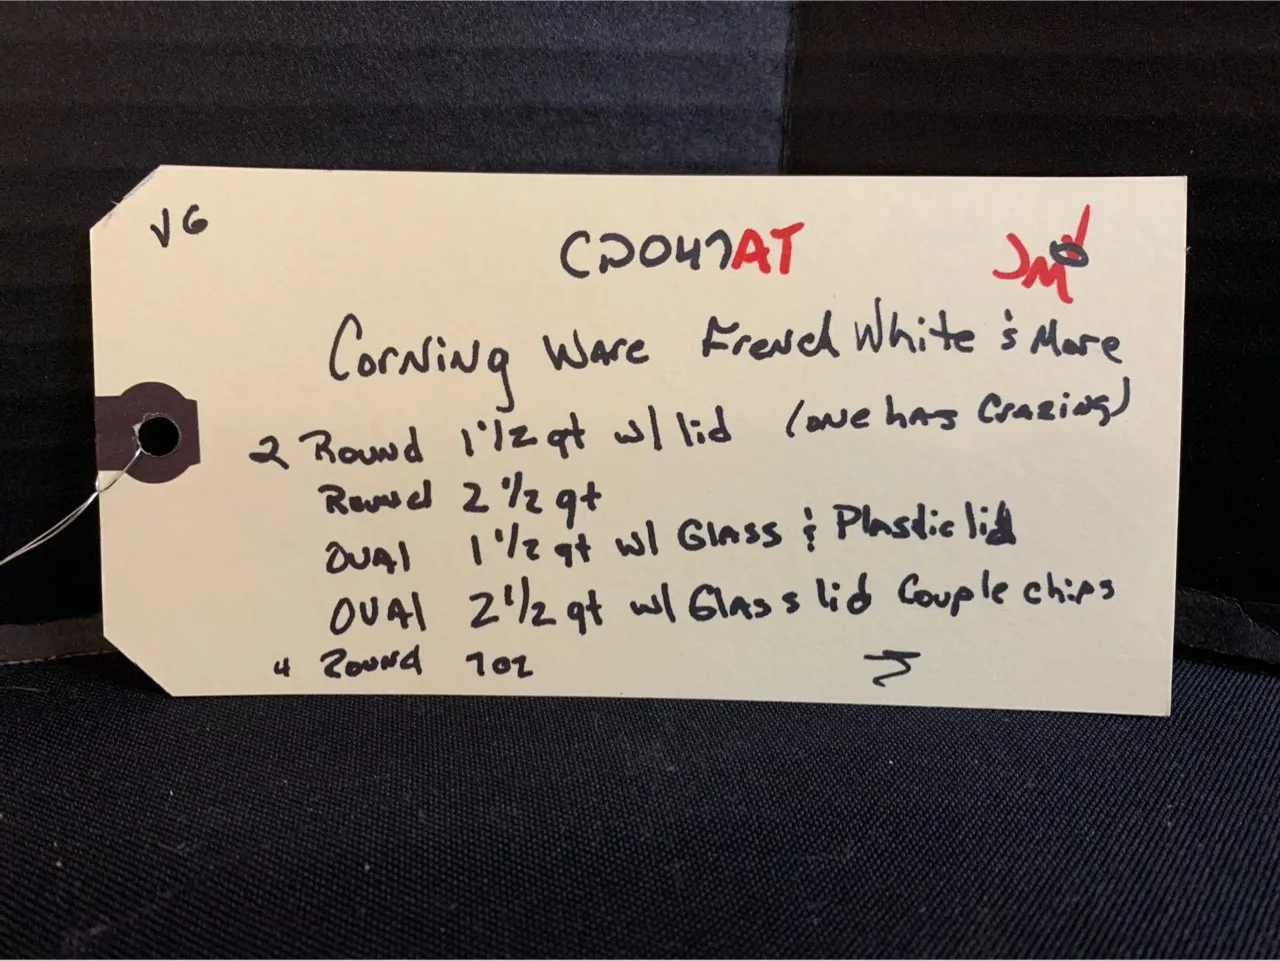 VG
CD047AT
JM
Corning Ware French White & More
2 Round 1 1/2 qt w/ lid (one has Crazing)
Round 2 1/2 qt
OVAl 1 1/2 qt w/ Glass & Plastic lid
OVAl 2 1/2 qt w/ Glass lid Couple chips
4 Round 7oz